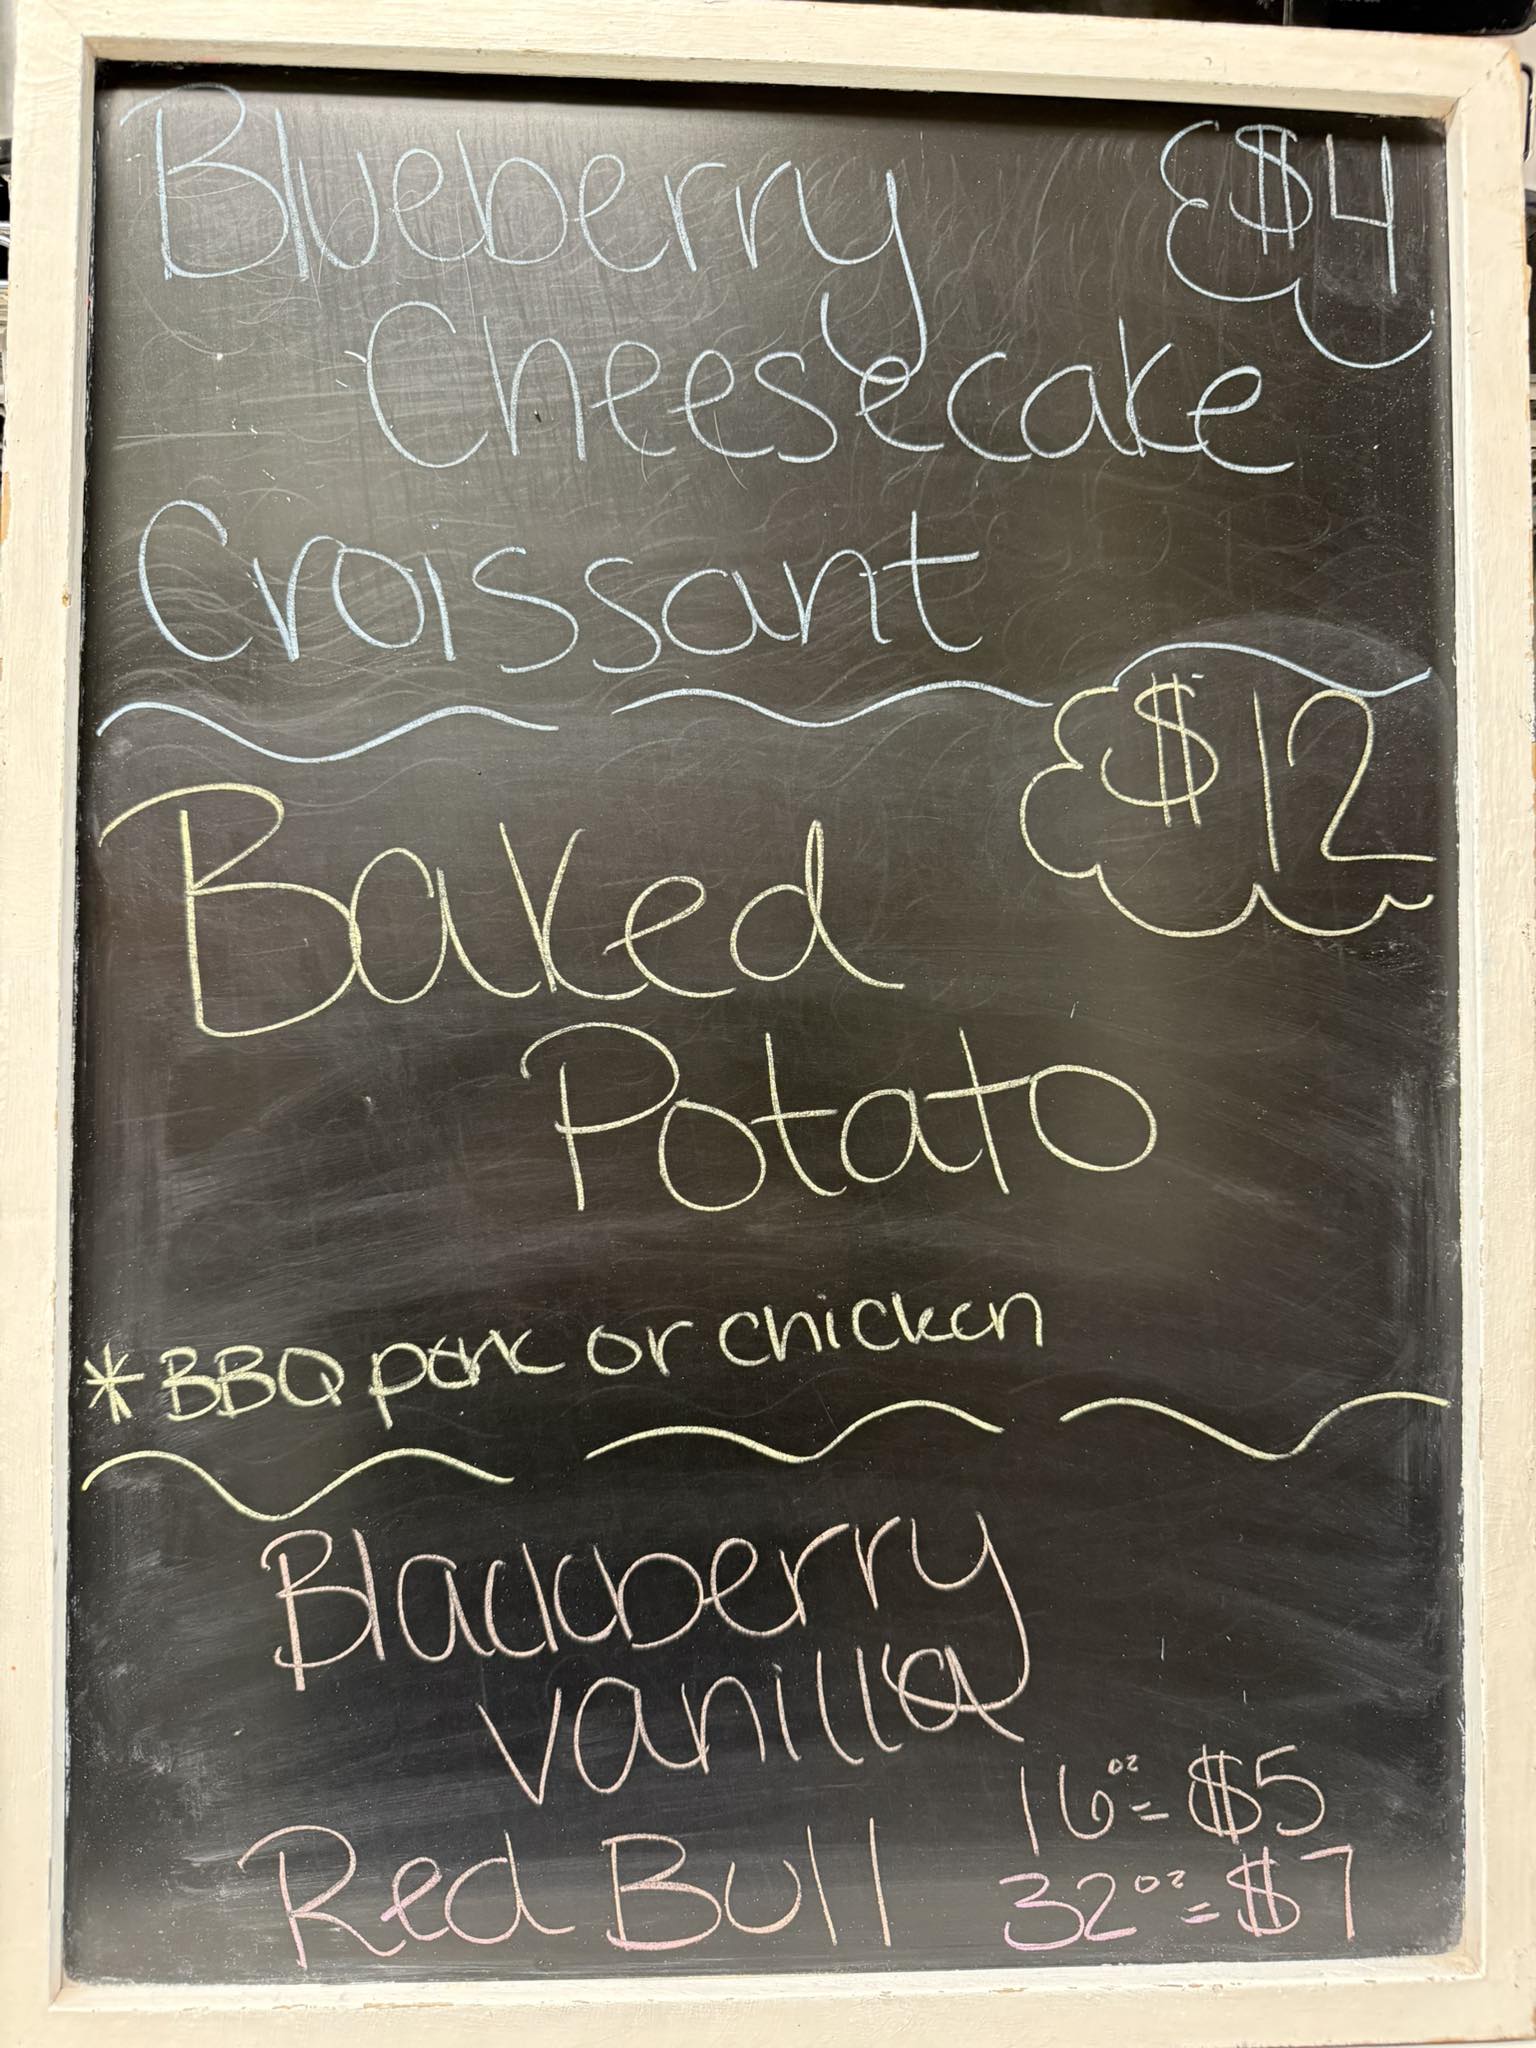 Blueberry $4
Cheesecake
Croissant
$12
Baked
Potato
*BBQ pork or chicken
Blackberry
vanilla
16oz = $5
Red Bull
32oz = $7